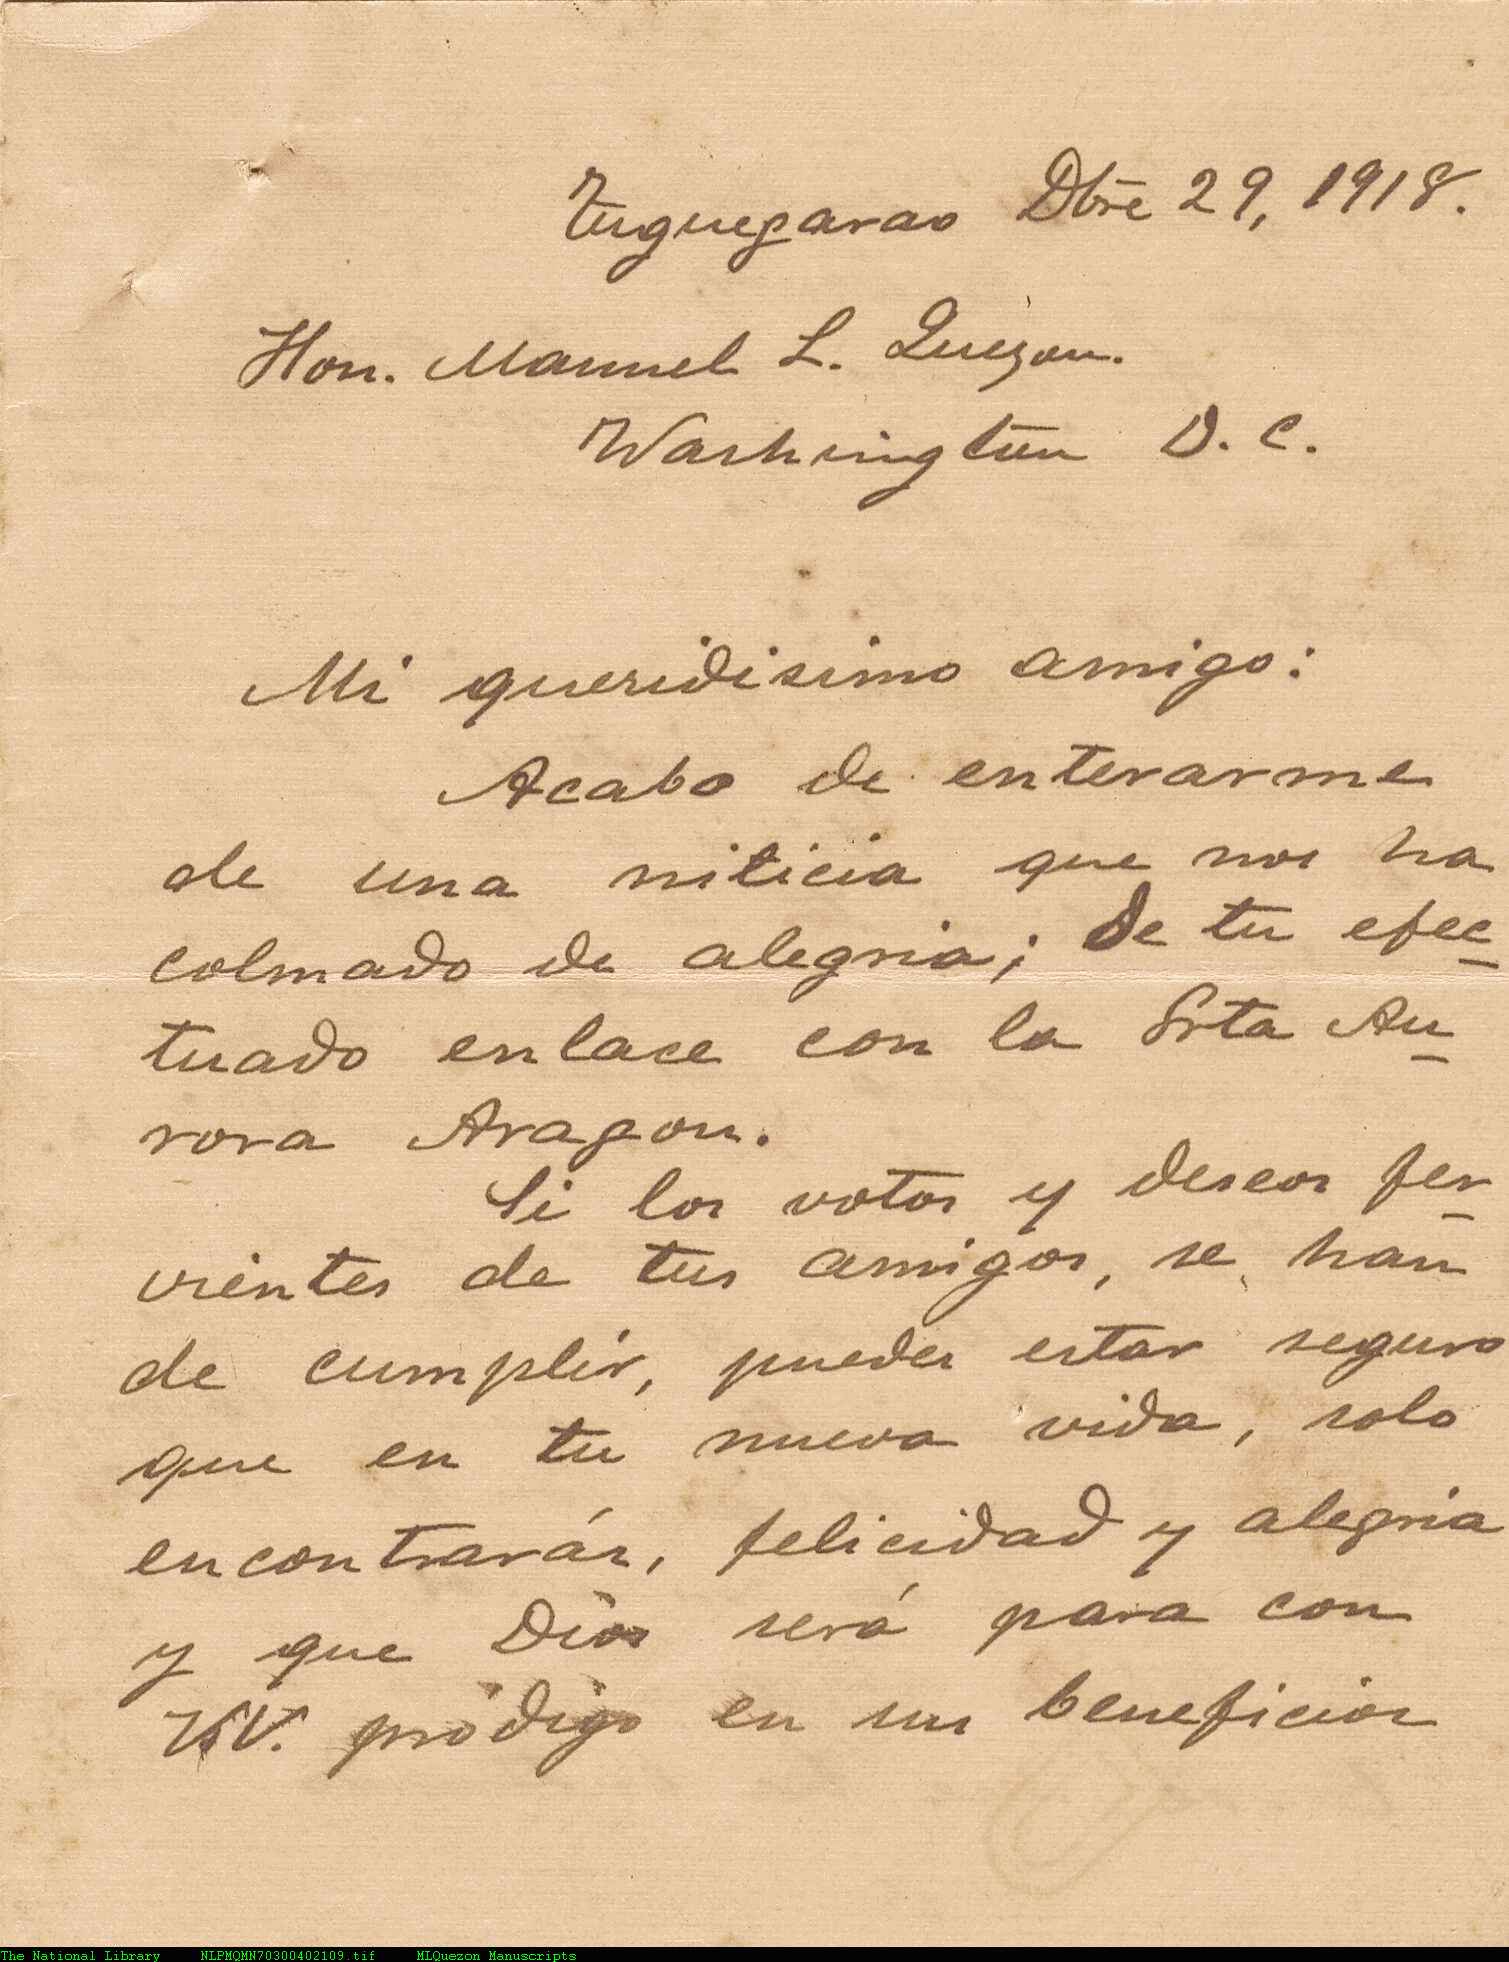 Tuguegarao Dbre 29, 1918.
Hon. Manuel L. Quezon.
Washington D. C.
Mi queridisimo amigo:
Acabo de enterarme
de una niticia que nos ha
colmado de alegria; de tu efec-
tuado enlace con la Srta Au-
rora Aragon.
Si los votos y deseos fer-
vientes de tus amigos, se han
de cumplir, puedes estar seguro
que en tu nueva vida, solo
encontrarás, felicidad y alegria
y que Dios será para con
VV. pródigo en sus beneficios
The National Library NLPMQMN70300402109.tif MLQuezon Manuscripts